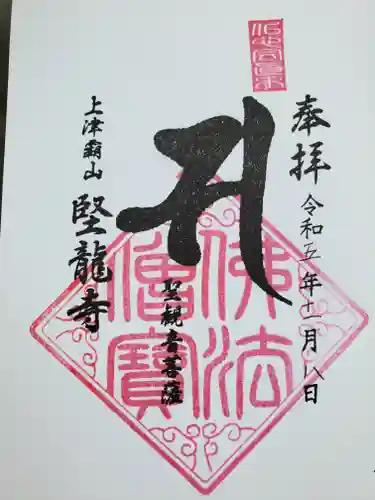 奉拝
令和五年十一月八日
聖観音菩薩
上津嶺山
堅龍寺
佛法
僧寳